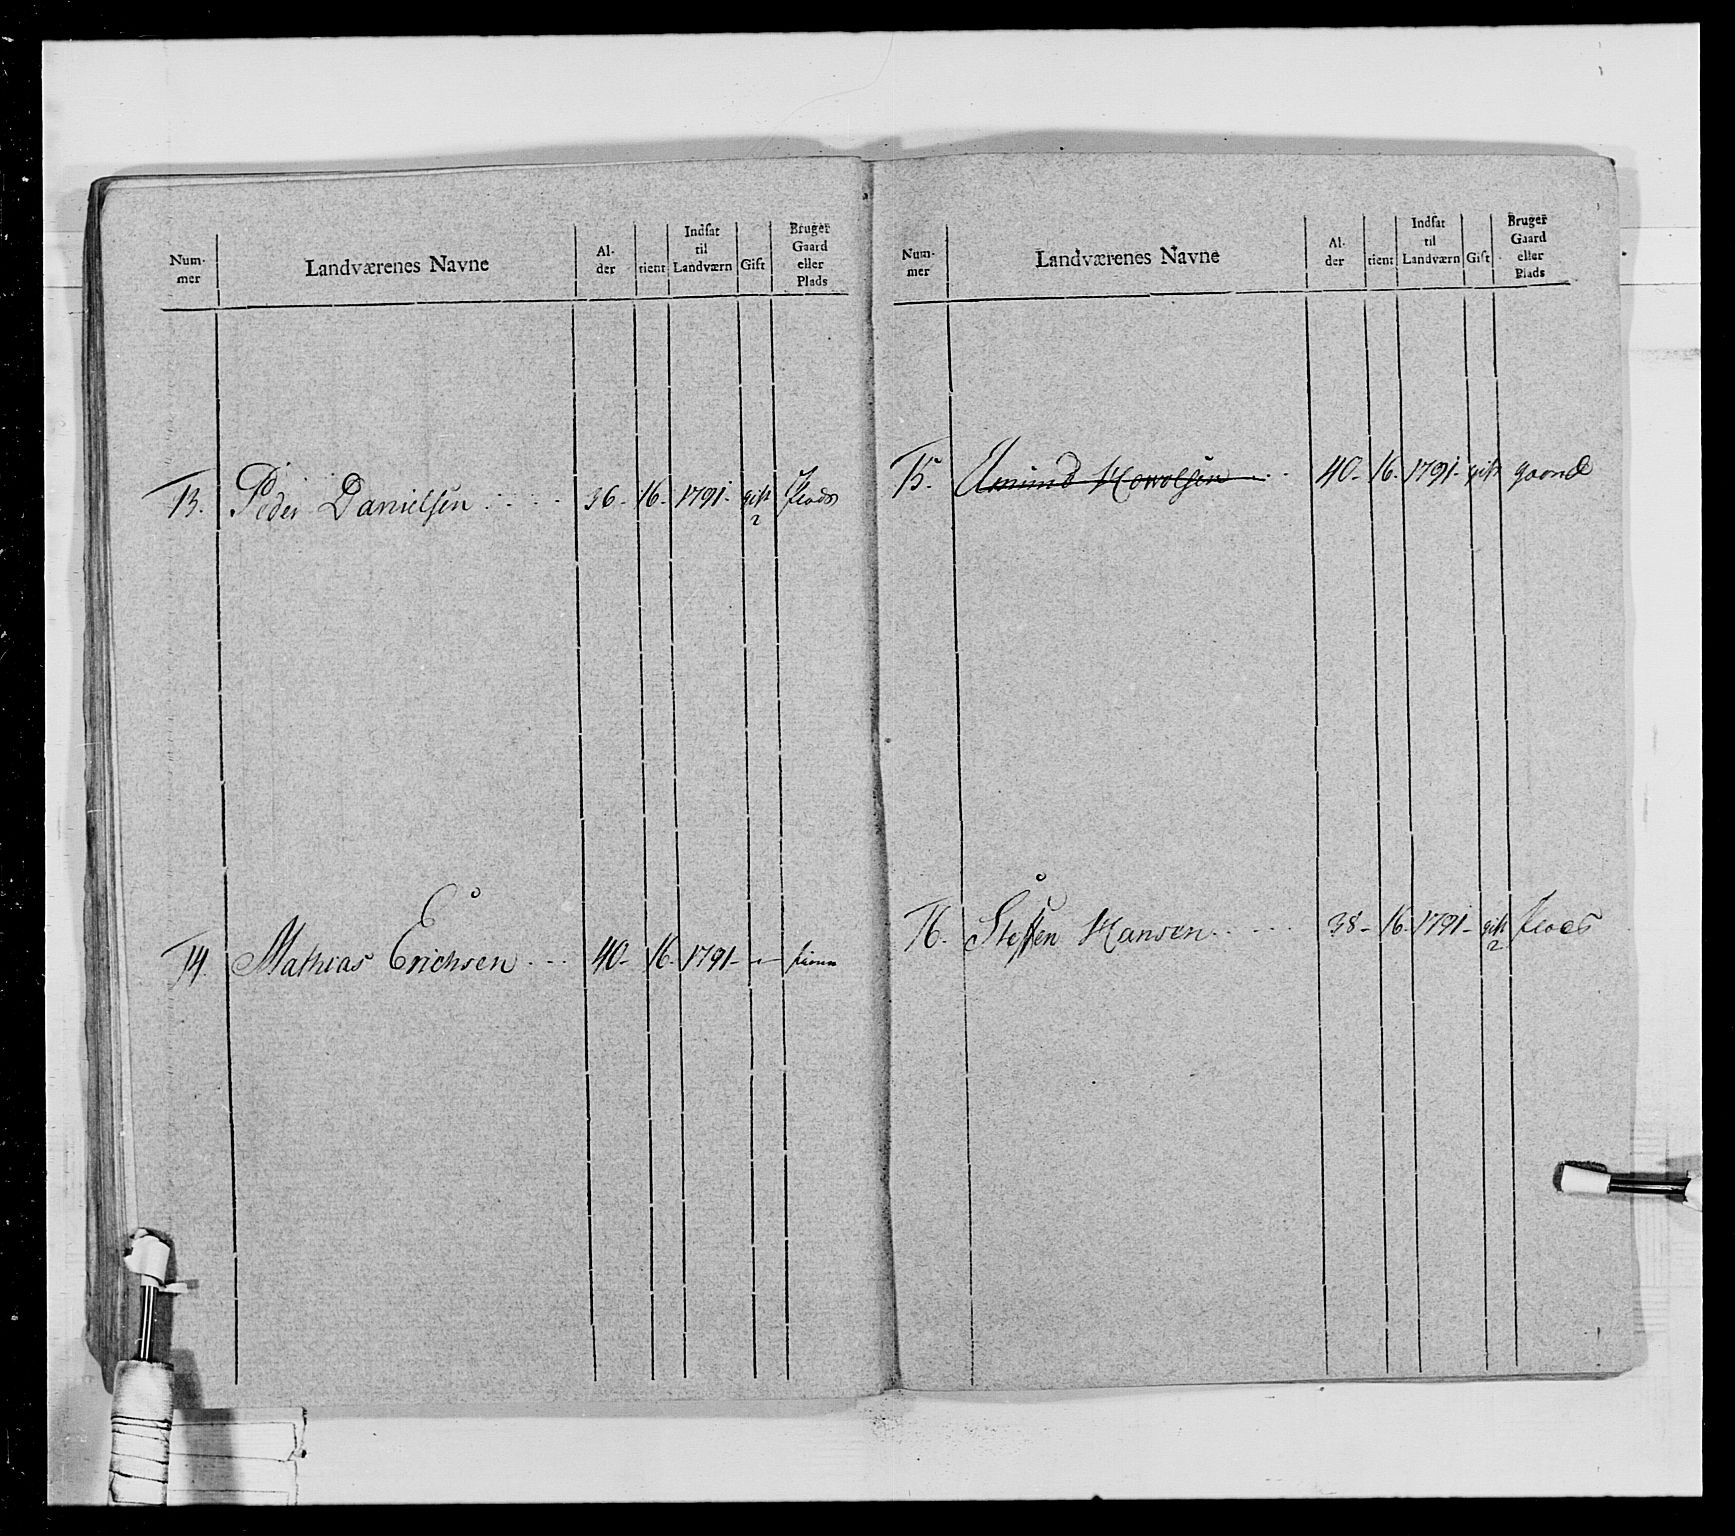 Num-
mer
Landværenes Navne
Al-
der
tient
Indsat
til
Landværn
Gift
Bruger
Gaard
eller
Plads
73. Peder Danielsen 36- 16- 1791- gift Plads
2
74. Mathias Erichsen 40- 16- 1791- -
Num-
mer
Landværenes Navne
Al-
der
tient
Indsat
til
Landværn
Gift
Bruger
Gaard
eller
Plads
75. Amund 40- 16- 1791- gift gaard
76. Steffen Hansen 38- 16- 1791- gift Plads
2